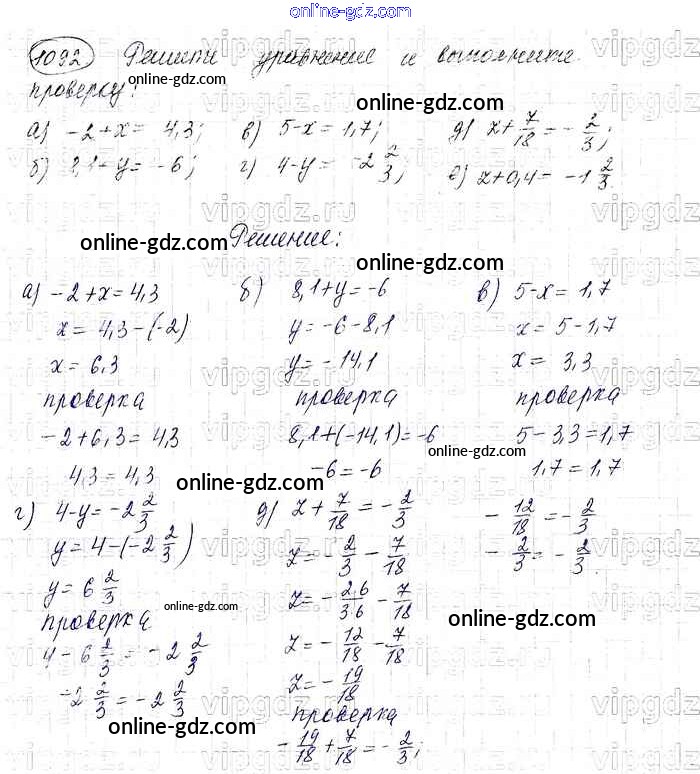 online-gdz.com
1092 Решите уравнение и выполните
проверку:
а) -2+x = 4,3; в) 5-x=1,7; д) z+7/18=-2/3;
б) 8,1+y=-6; г) 4-y= -2 2/3; е) z+0,4= -1 2/3.
Решение:
а) -2+x=4,3 б) 8,1+y=-6 в) 5-x=1,7
x= 4,3-(-2) y=-6-8,1 x=5-1,7
x= 6,3 y=-14,1 x= 3,3
проверка проверка проверка
-2+6,3=4,3 8,1+(-14,1)=-6 5-3,3=1,7
4,3=4,3 -6=-6 1,7=1,7
г) 4-y=-2 2/3 д) z+7/18=-2/3 -12/18=-2/3
y=4-(-2 2/3) z=-2/3-7/18 -2/3=-2/3
y=6 2/3 z=-2·6/3·6-7/18
проверка z=-12/18-7/18
4-6 2/3=-2 2/3 z=-19/18
-2 2/3=-2 2/3 проверка
-19/18+7/18=-2/3;
online-gdz.com
online-gdz.com
online-gdz.com
online-gdz.com
online-gdz.com
online-gdz.com
online-gdz.com
online-gdz.com
online-gdz.com
online-gdz.com
online-gdz.com
vipgdz.ru